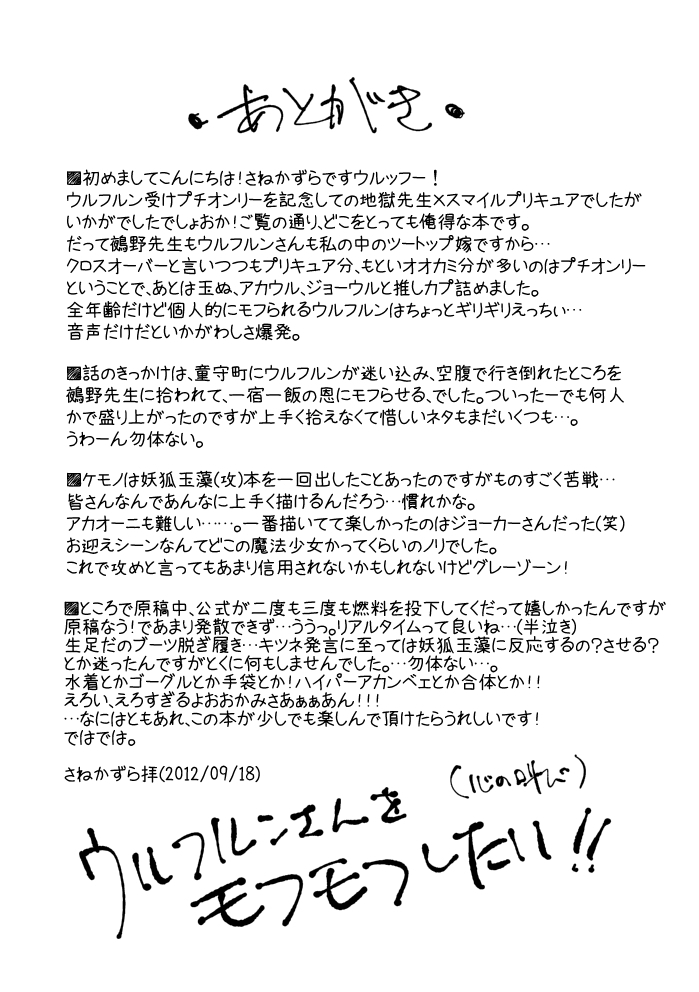 ・あとがき・
▨初めましてこんにちは！さねかずらですウルッフー！
ウルフルン受けプチオンリーを記念しての地獄先生×スマイルプリキュアでしたが
いかがでしたでしょおか！ご覧の通り、どこをとっても俺得な本です。
だって鵺野先生もウルフルンさんも私の中のツートップ嫁ですから…
クロスオーバーと言いつつもプリキュア分、もといオオカミ分が多いのはプチオンリー
ということで、あとは玉ぬ、アカウル、ジョーウルと推しカプ詰めました。
全年齢だけど個人的にモフられるウルフルンはちょっとギリギリえっちぃ…
音声だけだといかがわしさ爆発。
▨話のきっかけは、童守町にウルフルンが迷い込み、空腹で行き倒れたところを
鵺野先生に拾われて、一宿一飯の恩にモフらせる、でした。ついったーでも何人
かで盛り上がったのですが上手く拾えなくて惜しいネタもまだいくつも…。
うわーん勿体ない。
▨ケモノは妖狐玉藻(攻)本を一回出したことあったのですがものすごく苦戦…
皆さんなんであんなに上手く描けるんだろう…慣れかな。
アカオーニも難しい……。一番描いてて楽しかったのはジョーカーさんだった(笑)
お迎えシーンなんてどこの魔法少女かってくらいのノリでした。
これで攻めと言ってもあまり信用されないかもしれないけどグレーゾーン！
▨ところで原稿中、公式が二度も三度も燃料を投下してくだって嬉しかったんですが
原稿なう！であまり発散できず…ううっ。リアルタイムって良いね…(半泣き)
生足だのブーツ脱ぎ履き…キツネ発言に至っては妖狐玉藻に反応するの？させる？
とか迷ったんですがとくに何もしませんでした。…勿体ない…。
水着とかゴーグルとか手袋とか！ハイパーアカンベェとか合体とか！！
えろい、えろすぎるよおおかみさあぁぁあん！！！
…なにはともあれ、この本が少しでも楽しんで頂けたらうれしいです！
ではでは。
さねかずら拝(2012/09/18)
(心の叫び)
ウルフルンさんを
モフモフしたい!!